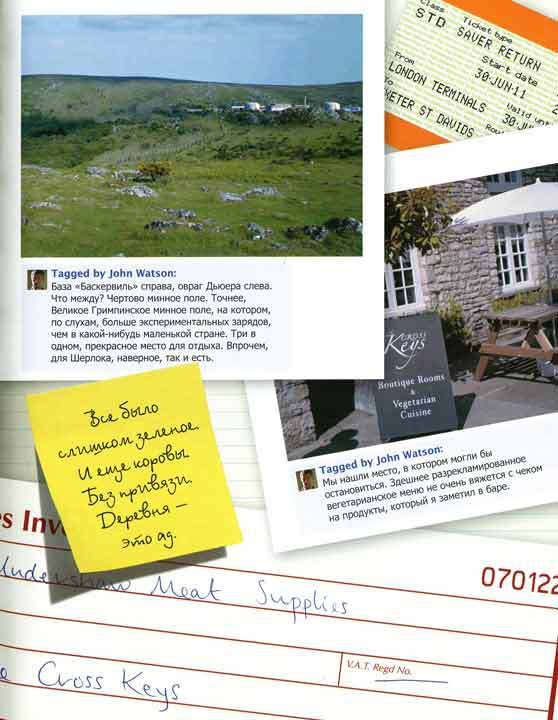 Class
Ticket type
STD SAVER RETURN
Start date
30·JUN·11
From
LONDON TERMINALS
Valid until
30·JU
EXETER ST DAVIDS
Tagged by John Watson:
База «Баскервиль» справа, овраг Дьюера слева.
Что между? Чертово минное поле. Точнее,
Великое Гримпинское минное поле, на котором,
по слухам, больше экспериментальных зарядов,
чем в какой-нибудь маленькой стране. Три в
одном, прекрасное место для отдыха. Впрочем,
для Шерлока, наверное, так и есть.
CROSS
Keys
Boutique Rooms
&
Vegetarian
Cuisine
Tagged by John Watson:
Мы нашли место, в котором могли бы
остановиться. Здешнее разрекламированное
вегетарианское меню не очень вяжется с чеком
на продукты, который я заметил в баре.
Все было
слишком зеленое.
И еще коровы.
Без привязи.
Деревня –
это ад.
es Inv
Undershaw Meat Supplies
070122
V.A.T. Regd No.
Cross Keys